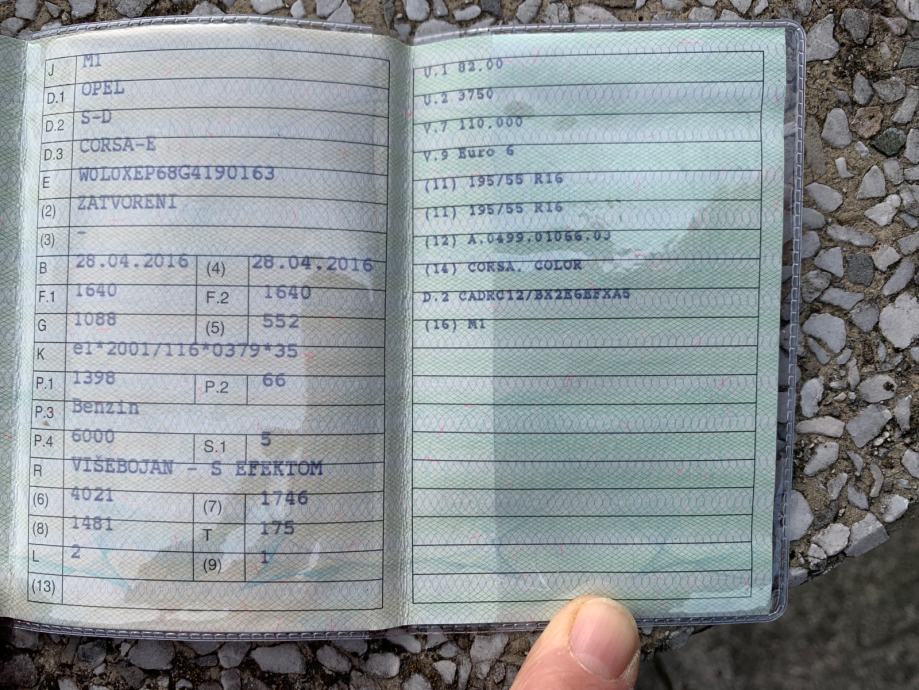 J M1
D.1 OPEL
D.2 S-D
D.3 CORSA-E
E W0L0XEP68G4190163
(2) ZATVORENI
(3) -
B 28.04.2016 (4) 28.04.2016
F.1 1640 F.2 1640
G 1088 (5) 552
K e1*2001/116*0379*35
P.1 1398 P.2 66
P.3 Benzin
P.4 6000 S.1 5
R VIŠEBOJAN - S EFEKTOM
(6) 4021 (7) 1746
(8) 1481 T 175
L 2 (9) 1
(13)
U.1 82.00
U.2 3750
V.7 110.000
V.9 Euro 6
(11) 195/55 R16
(11) 195/55 R16
(12) A.0499.01066.03
(14) CORSA, COLOR
D.2 CADRC12/BX2E6EFXA5
(16) M1